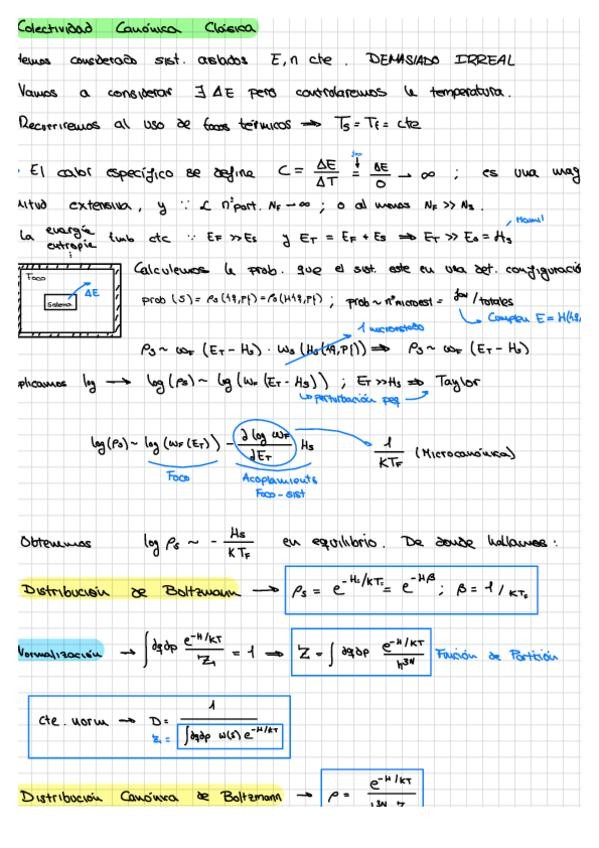 Colectividad Canónica Clásica
Hemos considerado sist. aislados E,n cte. DEMASIADO IRREAL
Vamos a considerar ∃ ΔE pero controlaremos la temperatura.
Recurriremos al uso de focos térmicos ⟹ Ts = Tf = cte
El calor específico se define C = ΔE/ΔT = ΔE/0 → ∞ ; es una mag
nitud extensiva, y ∵ ∠ nºpart. NF → ∞ ; o al menos NF >> Ns.
Hamil
La energía entropía tmb etc ∵ EF >> Es y ET = EF + Es ⟹ ET >> Es = Hs
Foco
Sistema
ΔE
Calculemos la prob. que el sist. este en una det. configuració
prob (s) = ρs(q,p) = ρs(H(q,p)) ; prob ~ nºmicroest = fav/totales
Cumplen E = H(q,
1 microestado
ρs ~ ωF (ET - Hs) · ωs (Hs(q,p)) ⟹ ρs ~ ωF (ET - Hs)
plicamos log → log(ρs) ~ log(ωF (ET - Hs)) ; ET >> Hs ⟹ Taylor
perturbación peq
log(ρs) ~ log(ωF(ET)) - ∂log ωF/∂ET Hs
1/KTF (Microcanónica)
Foco
Acoplamiento Foco-sist
Obtenemos log ρs ~ - Hs/KTF en equilibrio. De donde hallamos:
Distribución de Boltzmann → ρs = e^(-Hs/KTF) = e^(-Hβ) ; β = 1/KTF
Normalización → ∫dqdp e^(-H/KT)/Z = 1 ⟹ Z = ∫ dqdp e^(-H/KT)/h^3N Función de Partición
cte. norm → D = 1/∫dqdp ω(s) e^(-H/KT)
Z =
Distribución Canónica de Boltzmann → ρ = e^(-H/KT)